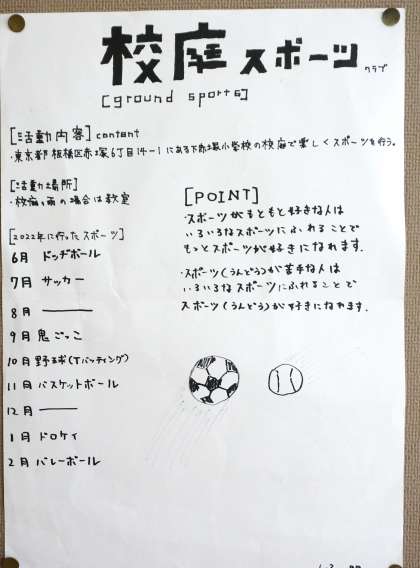 校庭スポーツクラブ
[ground sports]
[活動内容] content
・東京都板橋区赤塚6丁目14-1にある下赤塚小学校の校庭で楽しくスポーツを行う。
[活動場所]
・校庭,雨の場合は教室
[2022年に行ったスポーツ]
6月 ドッヂボール
7月 サッカー
8月 ―
9月 鬼ごっこ
10月 野球(Tバッティング)
11月 バスケットボール
12月 ―
1月 ドロケイ
2月 バレーボール
[POINT]
・スポーツがもともと好きな人は
いろいろなスポーツにふれることで
もっとスポーツが好きになれます.
・スポーツ(うんどう)が苦手な人は
いろいろなスポーツにふれることで
スポーツ(うんどう)が好きになれます.